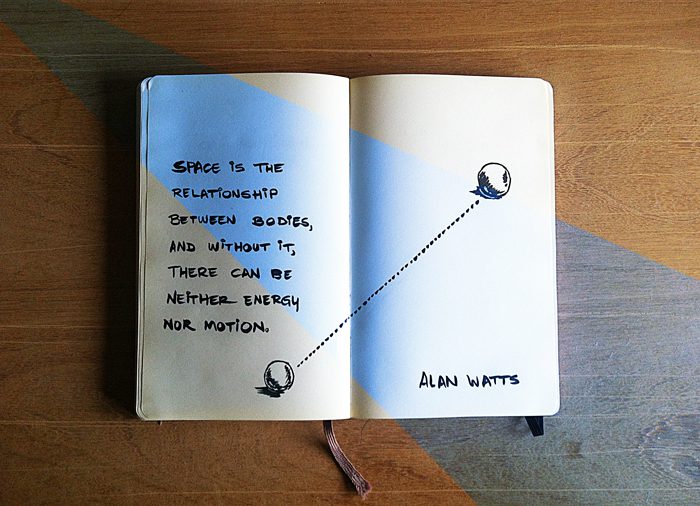 SPACE IS THE
RELATIONSHIP
BETWEEN BODIES,
AND WITHOUT IT,
THERE CAN BE
NEITHER ENERGY
NOR MOTION.
ALAN WATTS